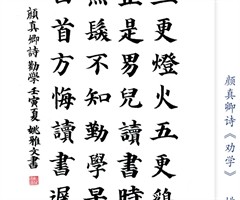 三更燈火五更雞
正是男兒讀書時
黑髮不知勤學早
白首方悔讀書遲
顏真卿詩勤學壬寅夏姚雅文書
颜真卿诗《劝学》